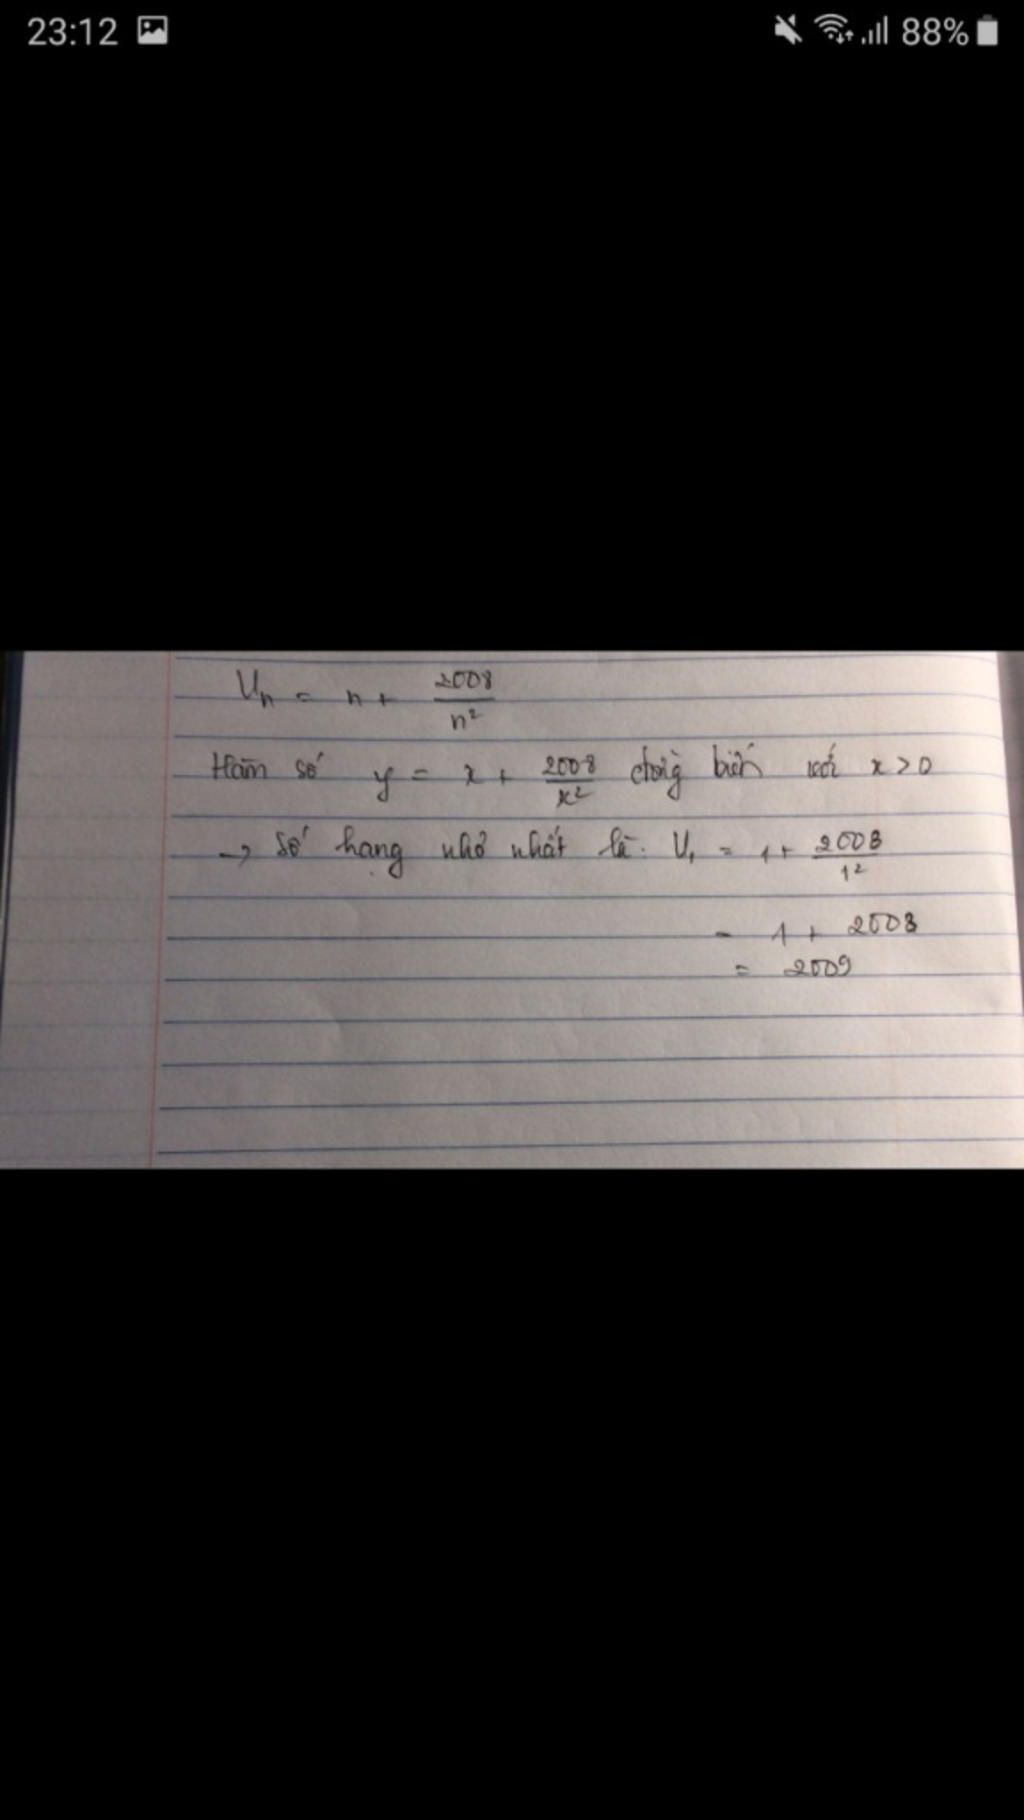 23:12 88%
Un = n + 2008/n²
Hàm số y = x + 2008/x² đồng biến với x > 0
→ Số hạng nhỏ nhất là: U₁ = 1 + 2008/1²
= 1 + 2008
= 2009